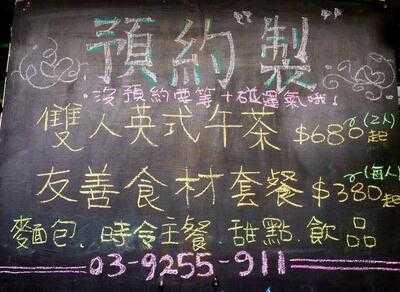 預約"製"
沒預約要等+碰運氣哦!
雙人英式午茶 $680(2人)起
友善食材套餐 $380(每人)起
麵包.時令主餐.甜點.飲品
03-9255-911